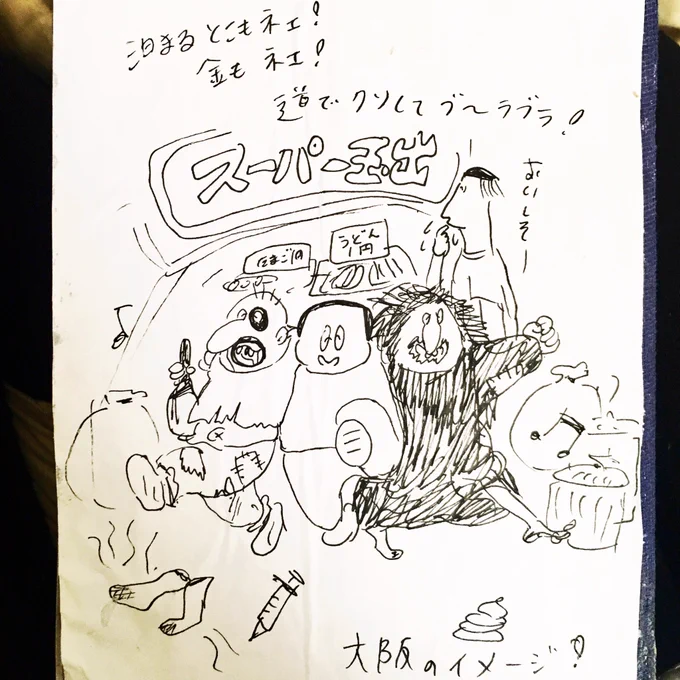 泊まるとこもネェ!
金もネェ!
道でクソしてブ〜ラブラ!
スーパー玉出
おいしそー
たまご1円
うどん
1円
大阪のイメージ!